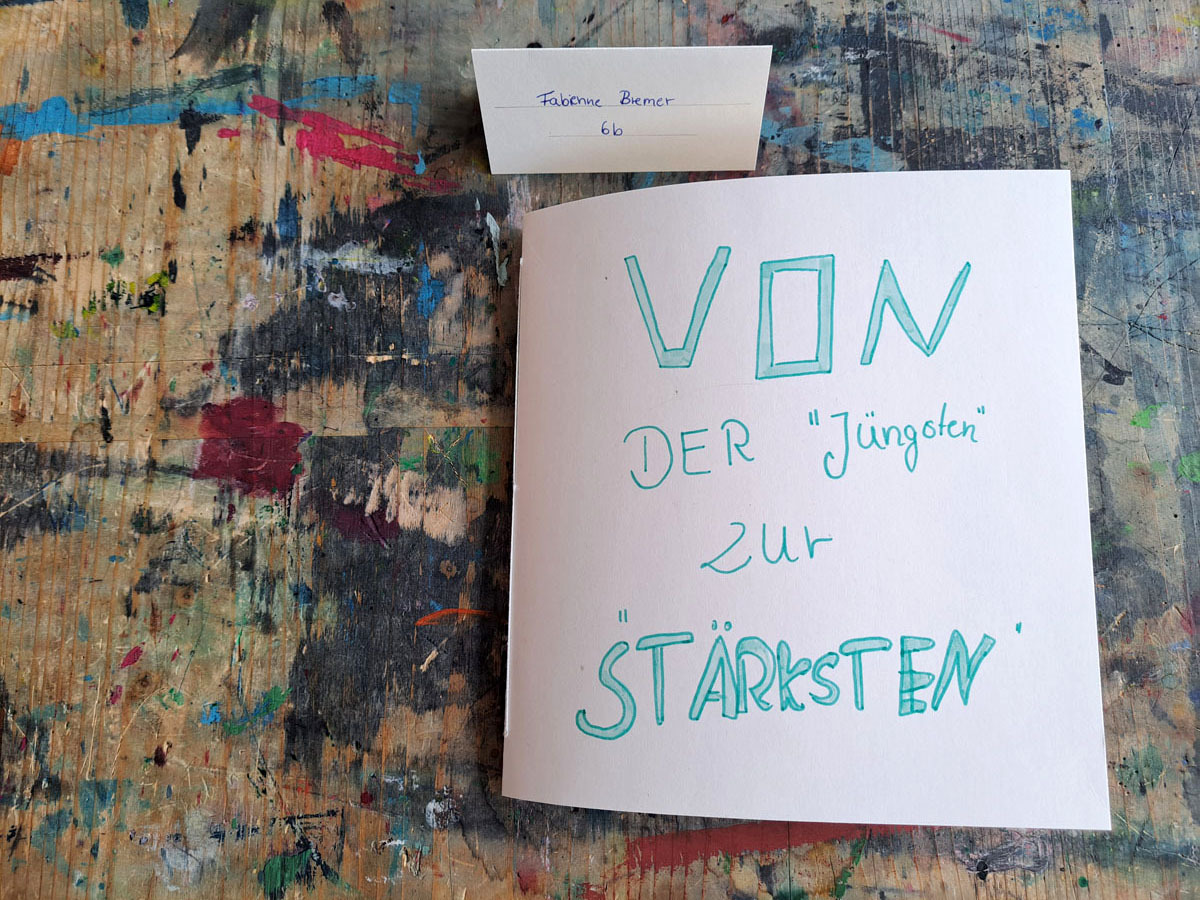 Fabienne Bremer
6b
VON
DER "Jüngsten"
zur
"STÄRKSTEN"